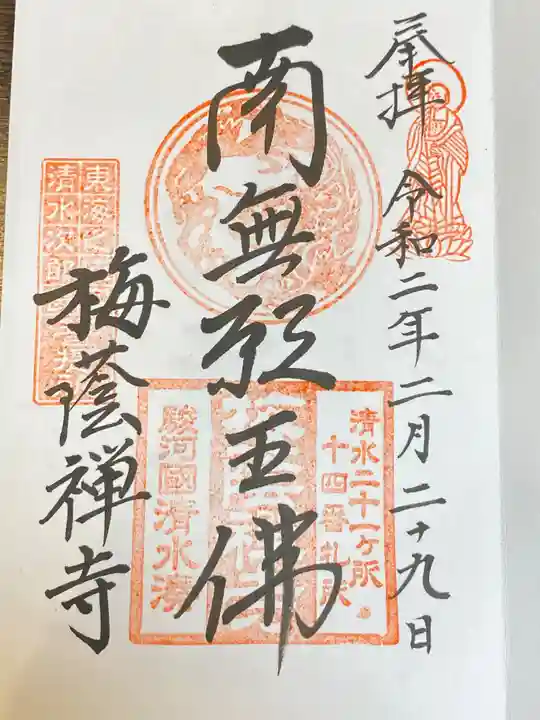 奉拝 令和二年二月二十九日
清水二十一ヶ所
十四番札所
南無願王佛
駿河國清水湊
東海
清水次郎長
梅蔭禅寺